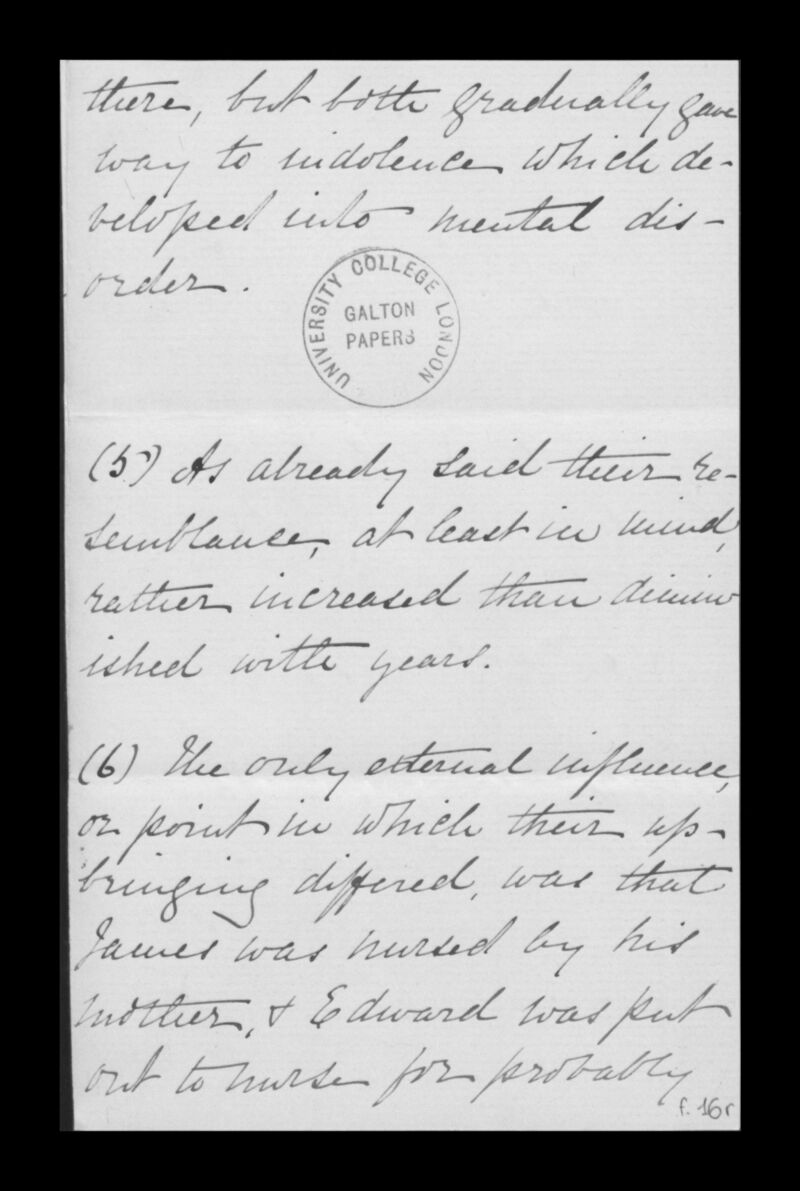 there, but both gradually gave
way to indolence which de-
veloped into mental dis-
order.
UNIVERSITY COLLEGE LONDON
GALTON
PAPERS
(5) As already said their re-
semblance, at least in mind,
rather increased than dimin
ished with years.
(6) The only external influence,
or point in which their up-
bringing differed, was that
James was nursed by his
mother, & Edward was put
out to nurse for probably
f. 16r